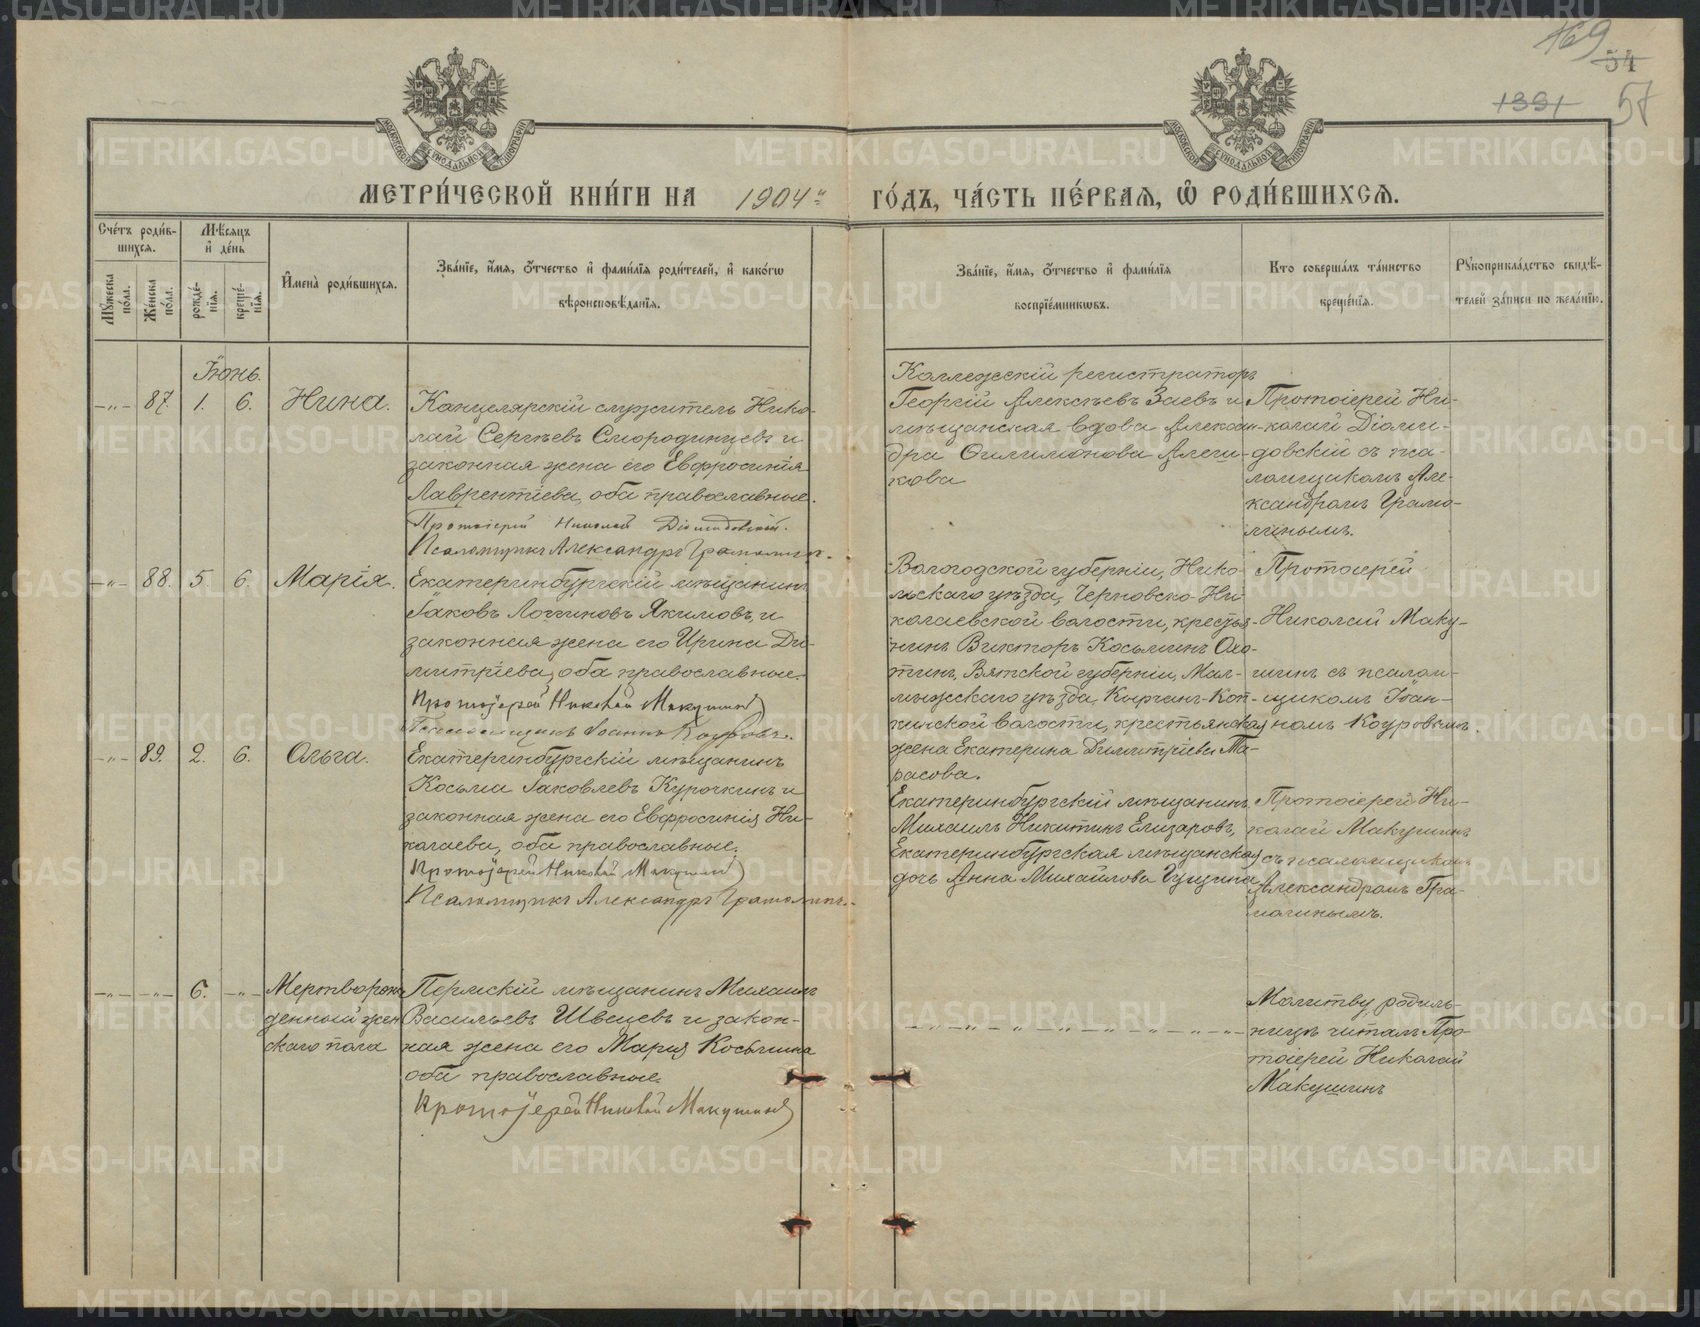 169
54
1331
57
МЕТРИ́ЧЕСКОЙ КНИ́ГИ НА 1904 ГО́ДЪ, ЧА́СТЬ ПЕ́РВАЯ, Ѽ РОДИ́ВШИХСЯ.
Сче́тъ роди́вшихся.
Му́жеска по́ла.
Же́нска по́ла.
Мѣ́сяцъ и҆ де́нь
рожде́нїя.
креще́нїя.
И҆мена̀ роди́вшихся.
Зва́нїе, и҆́мя, ѻ҆́тчество и҆ фами́лїя роди́телей, и҆ како́гѡ
вѣроисповѣ́данїя.
Зва́нїе, и҆́мя, ѻ҆́тчество и҆ фами́лїя
воспрїе́мникωвъ.
Кто соверша́лъ та́инство
креще́нїя.
Рꙋкоприкла́дство свидѣ́-
телей за́писи по жела́нїю.
Іюнь.
87. 1. 6. Нина.
Канцелярскій служитель Нико-
лай Сергѣевъ Смородинцевъ и
законная жена его Евфросинія
Лаврентіева, оба православные.
Протоіерей Николай Діомидовскій.
Псаломщикъ Александръ Грамолинъ.
Коллежскій регистраторъ
Георгій Алексѣевъ Заевъ и
мѣщанская вдова Алексан-
дра Филимонова
кова
Протоіерей Ни-
колай Діоми-
довскій съ пса-
ломщикомъ Але-
ксандромъ Грамо-
линымъ.
88. 5. 6. Марія.
Екатеринбургскій мѣщанинъ
Іаковъ Логгиновъ Якимовъ, и
законная жена его Ирина Ди-
митріева, оба православные.
Протоіерей Николай Макушинъ
Псаломщикъ Іоаннъ Коуровъ.
Вологодской губерніи, Нико-
льскаго уѣзда, Черновско-Ни-
колаевской волости, крестья-
нинъ Викторъ Косьминъ Охо-
тинъ, Вятской губерніи, Мал-
мыжскаго уѣзда, Кырчанъ-Коп-
кинской волости, крестьянская
жена Екатерина Димитріева Та-
расова.
Протоіерей
Николай Маку-
шинъ съ псалом-
щикомъ Іоан-
номъ Коуровымъ.
89. 2. 6. Ольга.
Екатеринбургскій мѣщанинъ
Косьма Іаковлевъ Курочкинъ и
законная жена его Евфросинія Ни-
колаева, оба православные.
Протоіерей Николай Макушинъ
Псаломщикъ Александръ Грамолинъ.
Екатеринбургскій мѣщанинъ
Михаилъ Никитинъ Елизаровъ,
Екатеринбургская мѣщанская
дочь Анна Михайлова Гущина
Протоіерей Ни-
колай Макушинъ
съ псаломщикомъ
Александромъ Гра-
молинымъ.
6. Мертворож-
денный жен-
скаго пола
Пермскій мѣщанинъ Михаилъ
Васильевъ Швецевъ и закон-
ная жена его Марія Косьмина
оба православные.
Протоіерей Николай Макушинъ
Молитву родиль-
ницѣ читалъ Про-
тоіерей Николай
Макушинъ
METRIKI.GASO-URAL.RU